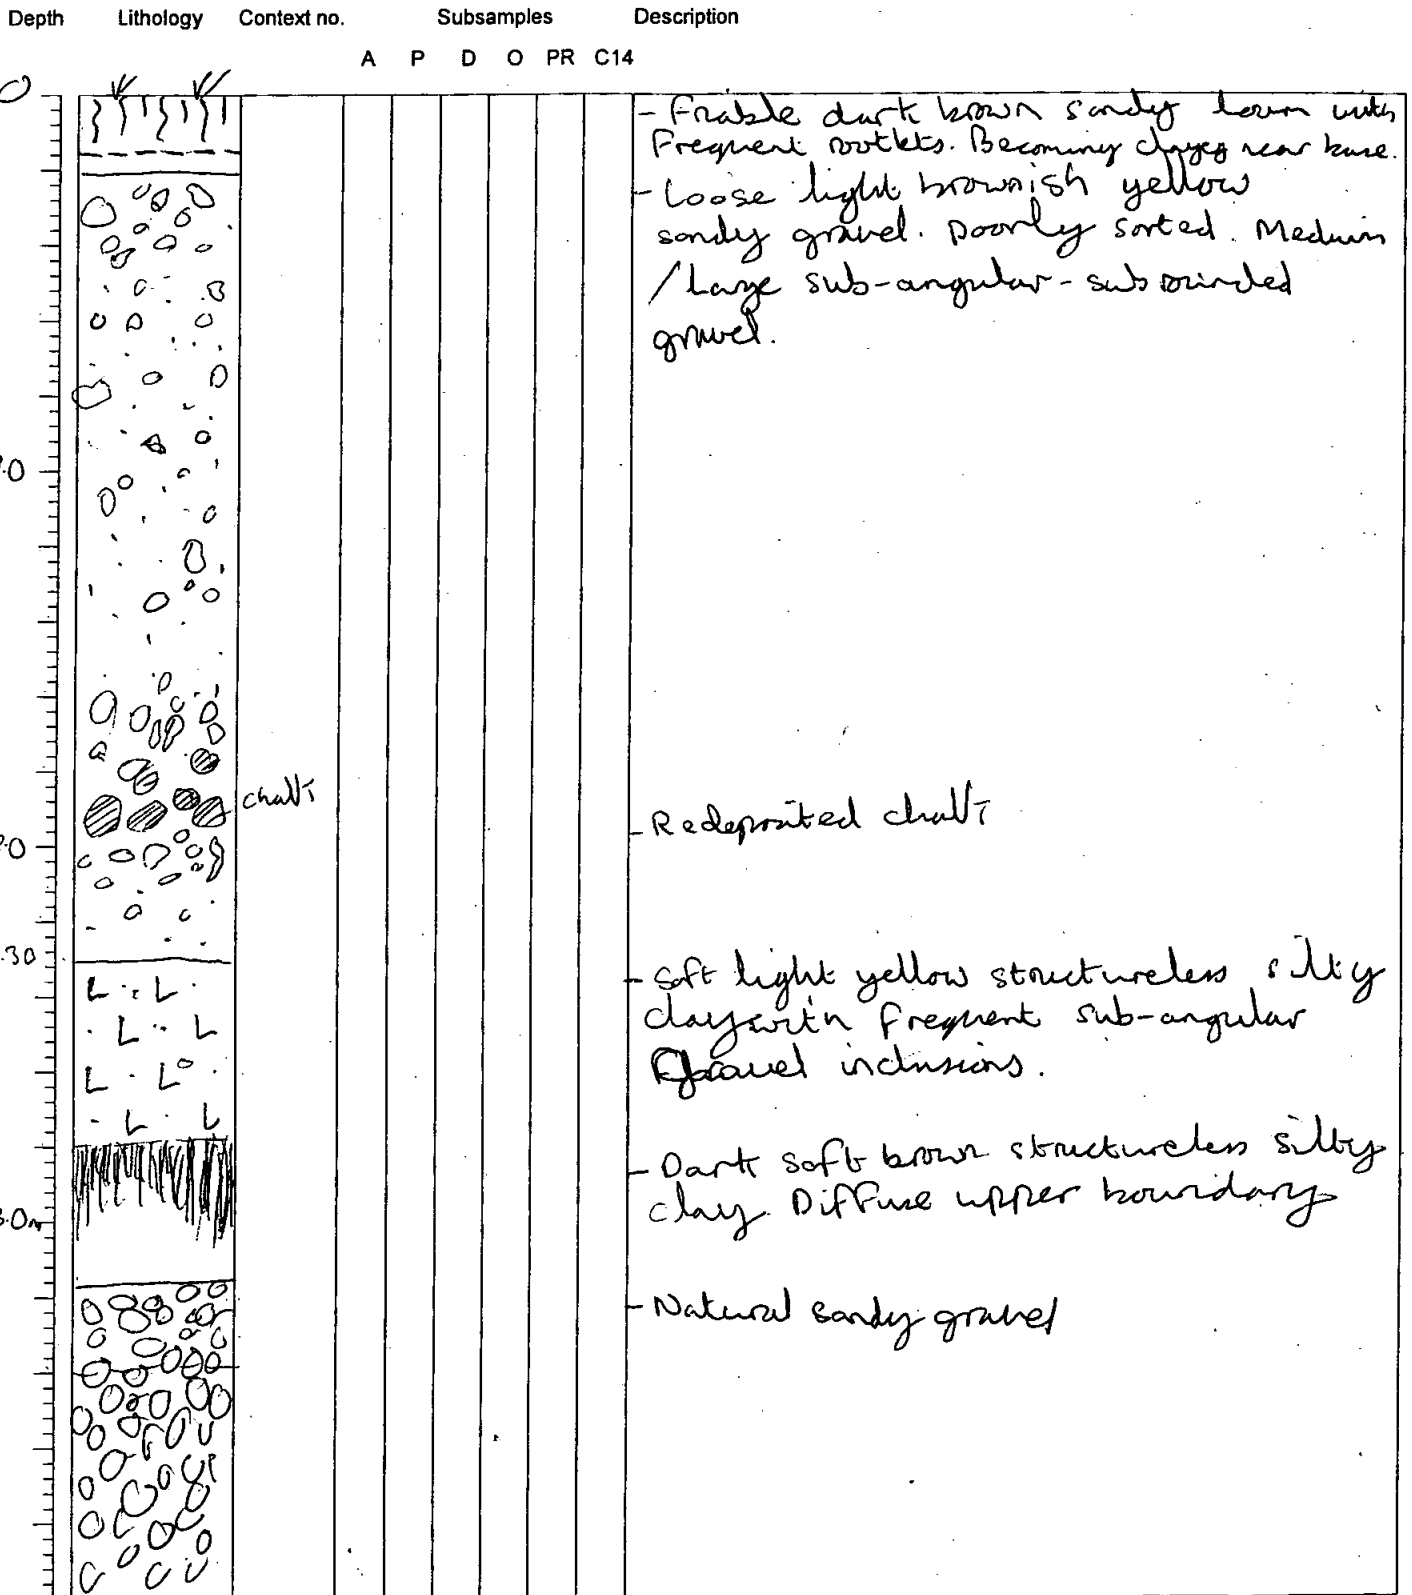 Depth Lithology Context no. Subsamples Description
A P D O PR C14
0
- Friable dark brown sandy loam with
Frequent rootlets. Becoming clayey near base.
- Loose light brownish yellow
sandy gravel. Poorly sorted. Medium
/ Large sub-angular - subrounded
gravel.
.0
chalk
- Redeposited chalk
.0
.30
- Soft light yellow structureless silty
clay with frequent sub-angular
Gravel inclusions.
- Dark soft brown structureless silty
clay. Diffuse upper boundary
3.0m
- Natural sandy gravel